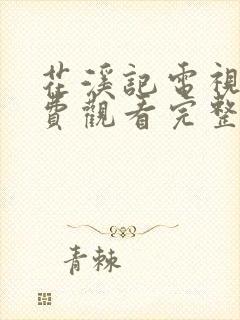 花溪記電視
費觀看完整
青棘